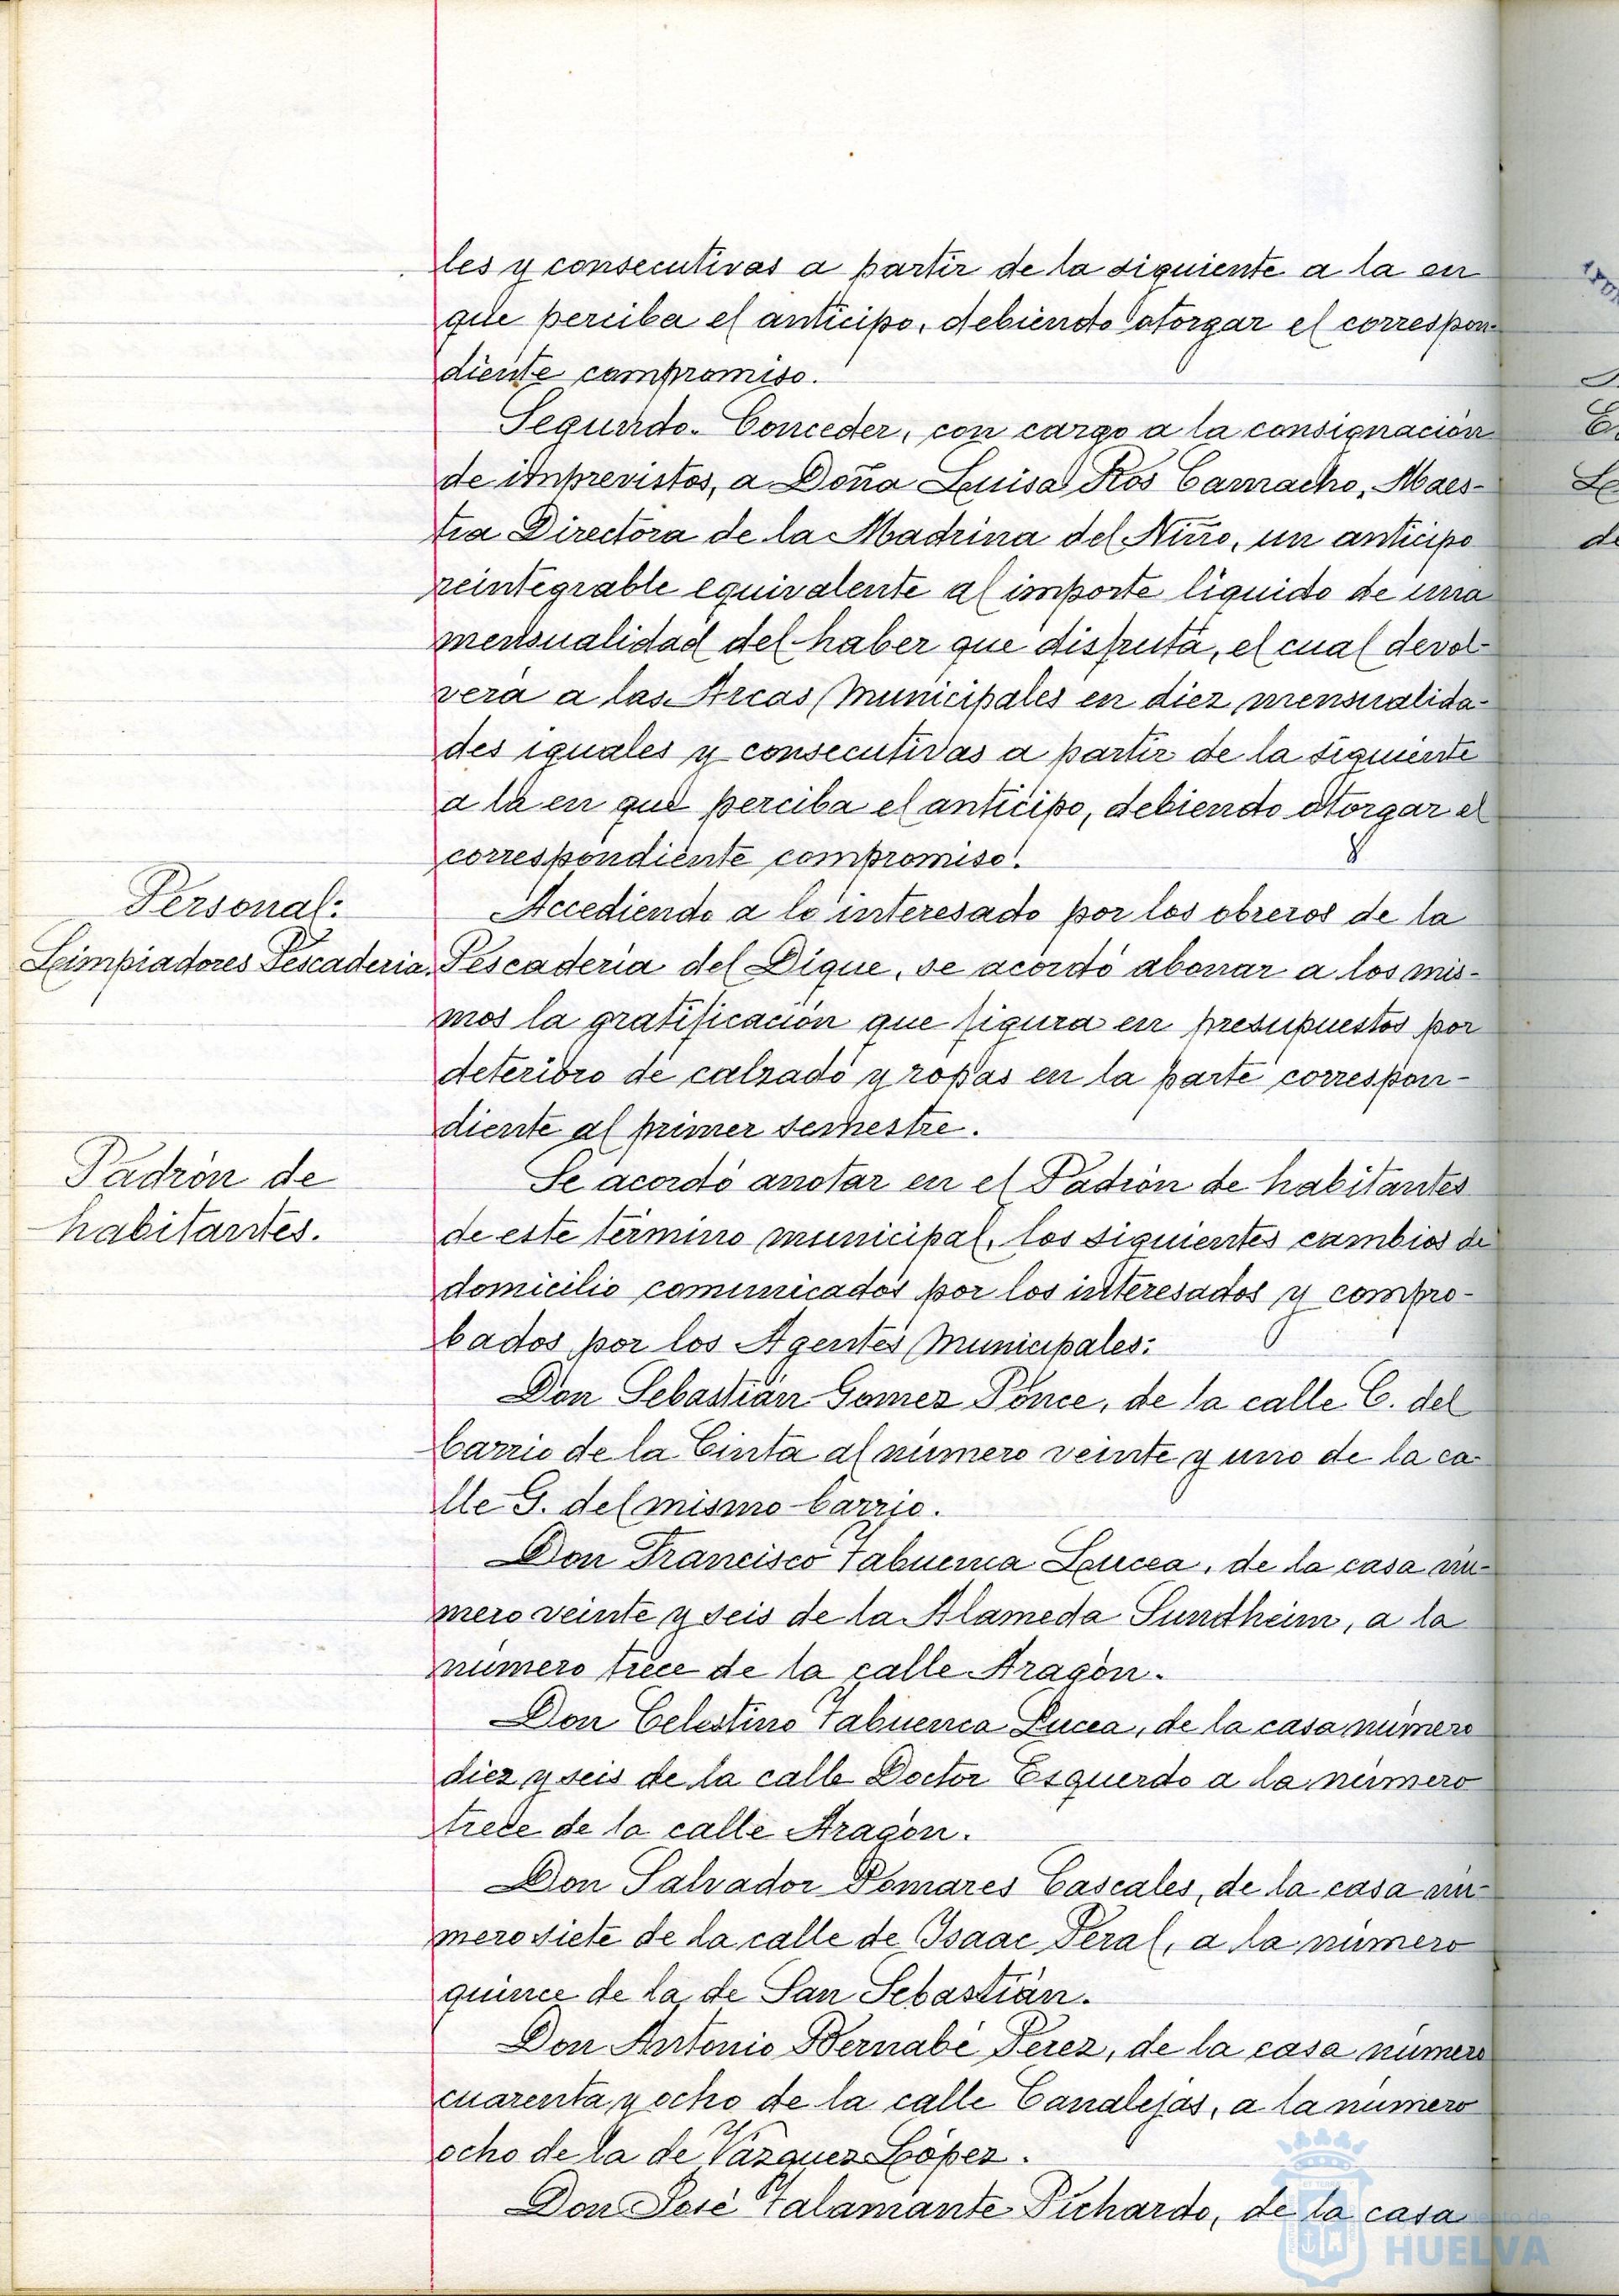 les y consecutivas a partir de la siguiente a la en
que perciba el anticipo, debiendo otorgar el correspon-
diente compromiso.
Segundo.- Conceder, con cargo a la consignación
de imprevistos, a Doña Luisa Ros Camacho, Maes-
tra Directora de la Madrina del Niño, un anticipo
reintegrable equivalente al importe líquido de una
mensualidad del haber que disfruta, el cual devol-
verá a las Arcas Municipales en diez mensualida-
des iguales y consecutivas a partir de la siguiente
a la en que perciba el anticipo, debiendo otorgar el
correspondiente compromiso.
Personal:
Limpiadores Pescaderia.
Accediendo a lo interesado por los obreros de la
Pescaderia del Dique, se acordó abonar a los mis-
mos la gratificación que figura en presupuestos por
deterioro de calzado y ropas en la parte correspon-
diente al primer semestre.
Padrón de
habitantes.
Se acordó anotar en el Padrón de habitantes
de este término municipal, los siguientes cambios de
domicilio comunicados por los interesados y compro-
bados por los Agentes Municipales:
Don Sebastián Gomez Ponce, de la calle C. del
barrio de la Cinta al número veinte y uno de la ca-
lle G. del mismo barrio.
Don Francisco Tabuenca Lucea, de la casa nú-
mero veinte y seis de la Alameda Sundheim, a la
número trece de la calle Aragón.
Don Celestino Tabuenca Lucea, de la casa número
diez y seis de la calle Doctor Esquerdo a la número
trece de la calle Aragón.
Don Salvador Pomares Cascales, de la casa nú-
mero siete de la calle de Isaac Peral, a la número
quince de la de San Sebastián.
Don Antonio Bernabé Perez, de la casa número
cuarenta y ocho de la calle Canalejas, a la número
ocho de la de Vázquez López.
Don José Talamante Pichardo, de la casa
HUELVA